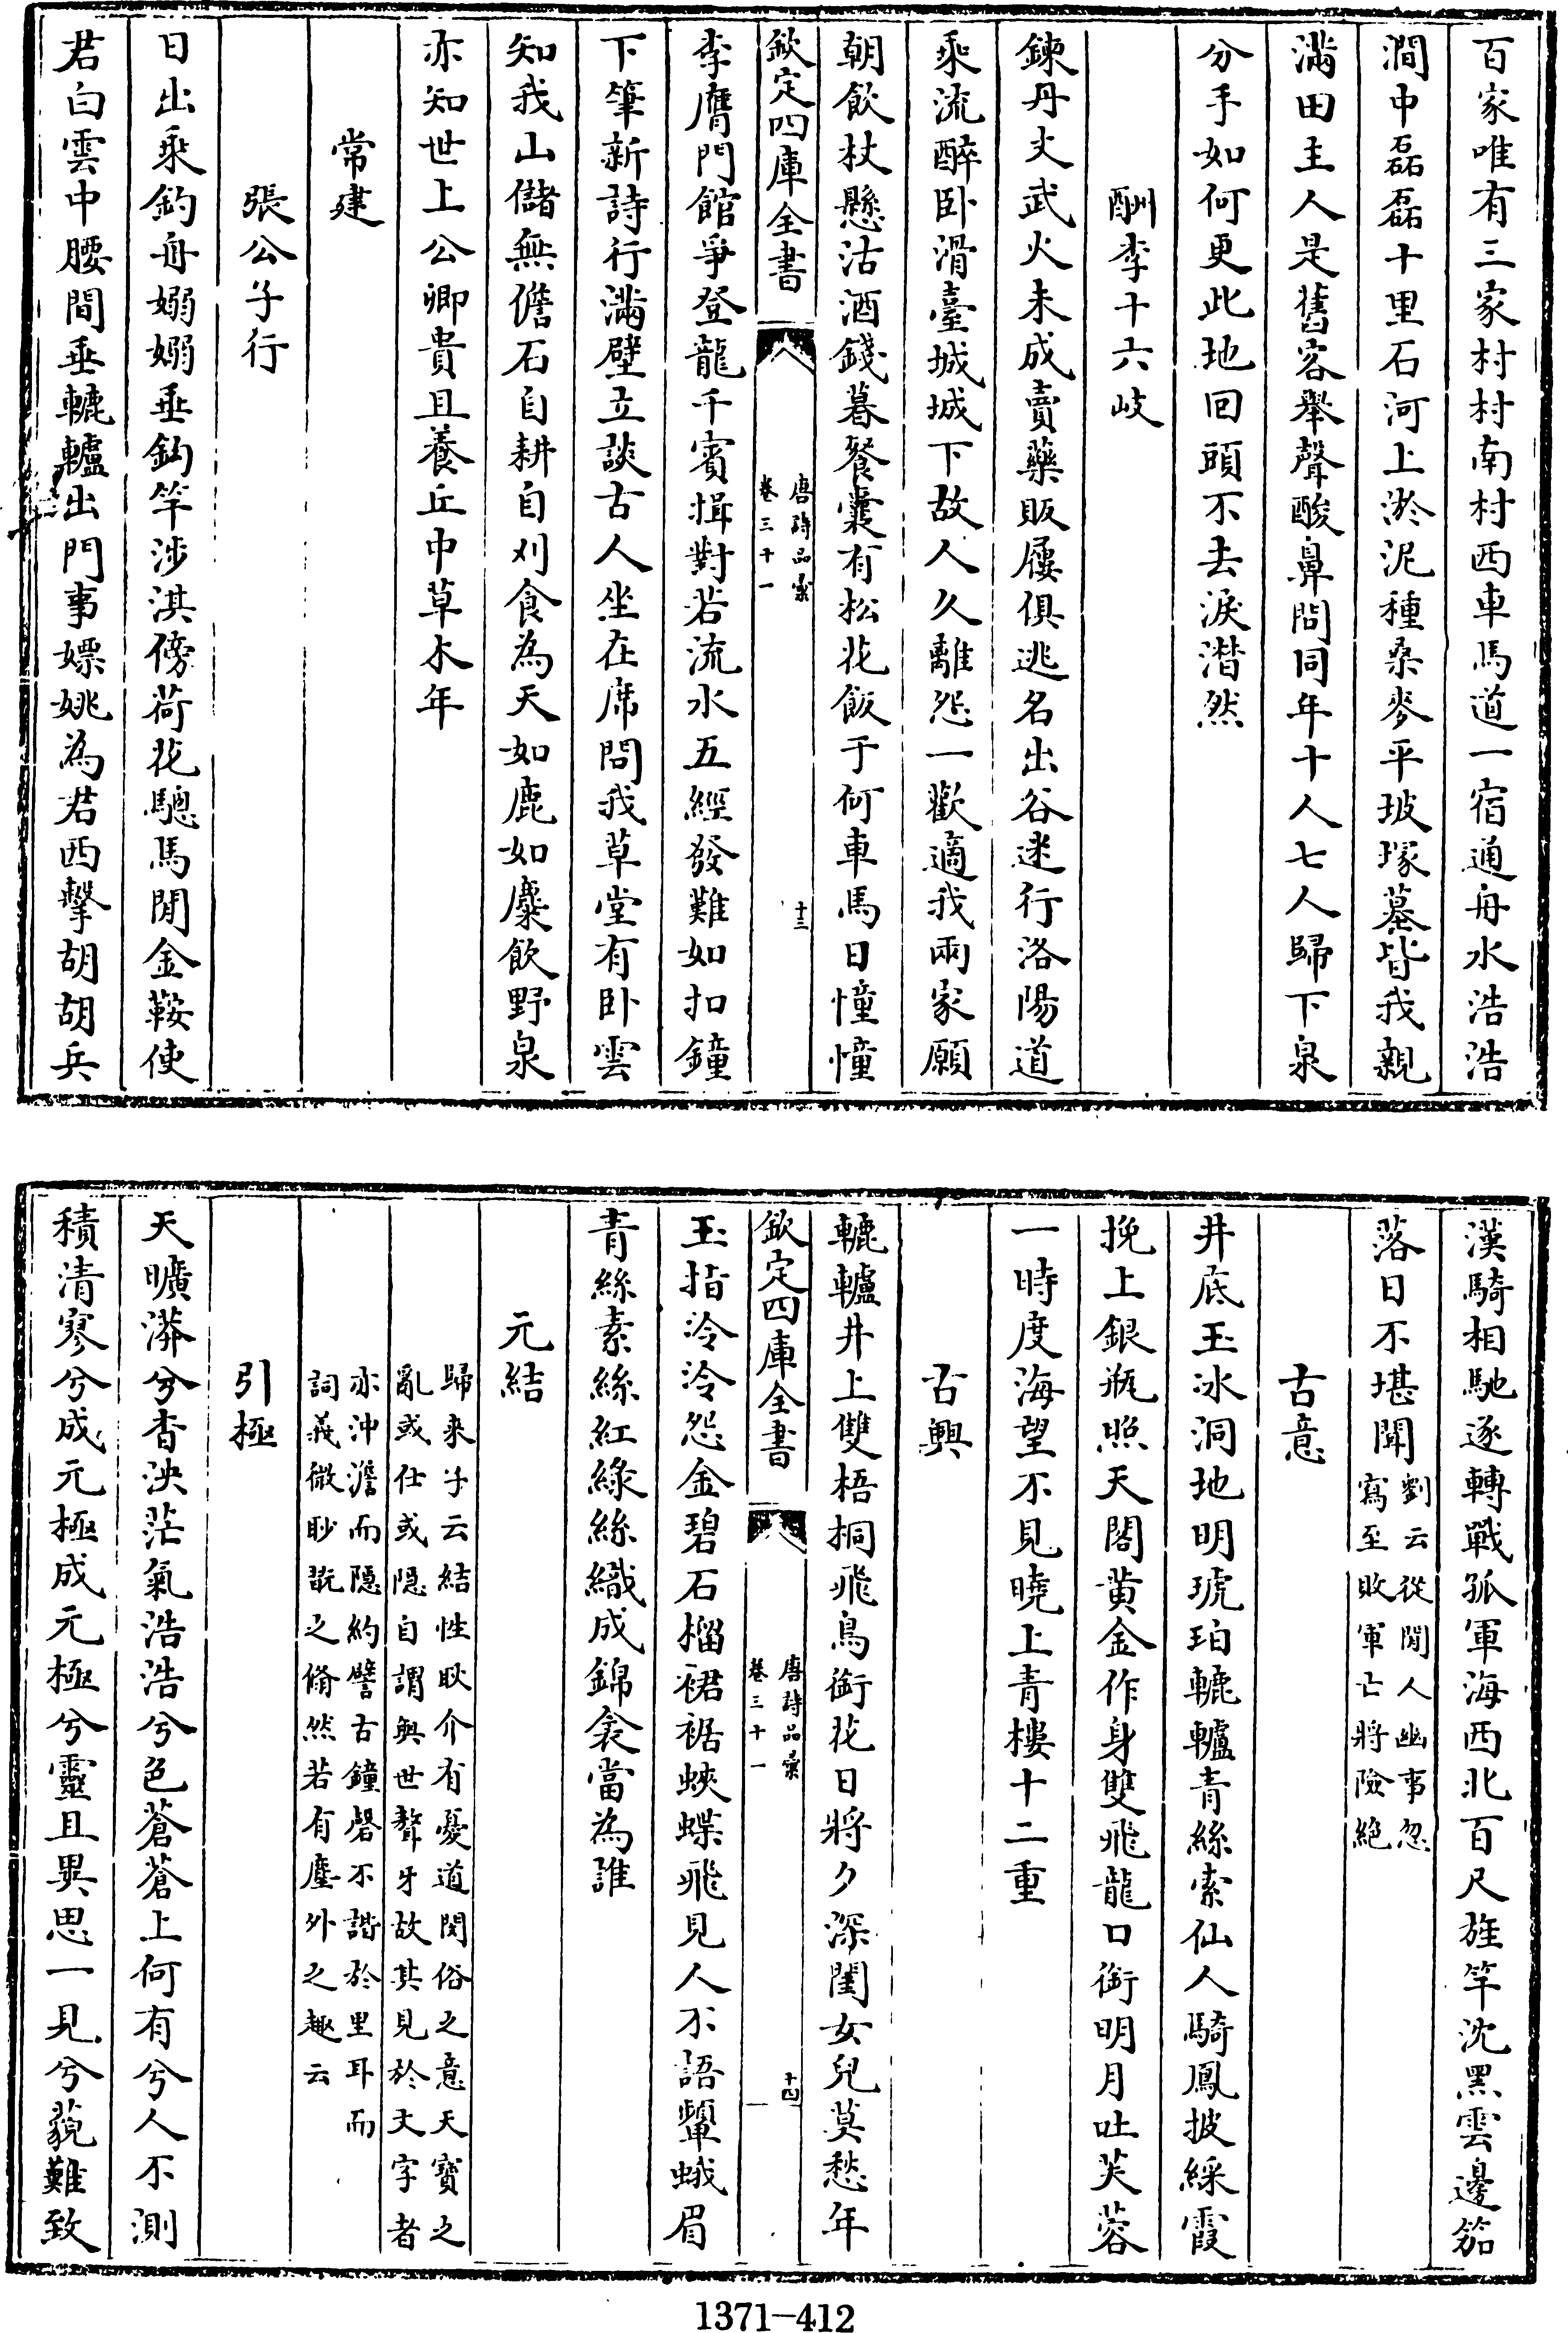 百家唯有三家村村南村西車馬道一宿通舟水浩浩
澗中磊磊十里石河上淤泥種桑麥平坡塚墓皆我親
滿田主人是舊客舉聲酸鼻問同年十人七人歸下泉
分手如何更此地回頭不去淚潸然
酬李十六岐
鍊丹文武火未成賣藥販屨俱逃名出谷迷行洛陽道
乘流醉卧滑臺城城下故人久離怨一歡適我兩家願
朝飲杖懸沽酒錢暮餐囊有松花飯于何車馬日憧憧
欽定四庫全書
唐詩品彙
卷三十一
十三
李膺門館爭登龍千賓揖對若流水五經發難如扣鐘
下筆新詩行滿壁立談古人坐在席問我草堂有卧雲
知我山儲無儋石自耕自刈食為天如鹿如麋飲野泉
亦知世上公卿貴且養丘中草木年
常建
張公子行
日出乘釣舟嫋嫋垂鈎竿涉淇傍荷花驄馬閒金鞍使
君白雲中腰間垂轆轤出門事嫖姚為君西擊胡胡兵
漢騎相馳逐轉戰孤軍海西北百尺旌竿沈黑雲邊笳
落日不堪聞
劉云從閒人幽事忽
寫至敗軍亡將險絶
古意
井底玉冰洞地明琥珀轆轤青絲索仙人騎鳳披綵霞
挽上銀瓶照天閣黄金作身雙飛龍口銜明月吐芙蓉
一時度海望不見曉上青樓十二重
古興
轆轤井上雙梧桐飛鳥銜花日將夕深閨女兒莫愁年
欽定四庫全書
唐詩品彙
卷三十一
十四
玉指泠泠怨金碧石榴裙裾蛺蝶飛見人不語顰蛾眉
青絲素絲紅綠絲織成錦衾當為誰
元結
歸来子云結性耿介有憂道閔俗之意天寶之
亂或仕或隠自謂與世聱牙故其見於文字者
亦沖澹而隠約譬古鐘磬不諧於里耳而
詞義微眇翫之翛然若有塵外之趣云
引極
天曠漭兮杳泱茫氣浩浩兮色蒼蒼上何有兮人不測
積清寥兮成元極成元極兮靈且異思一見兮藐難致
1371-412